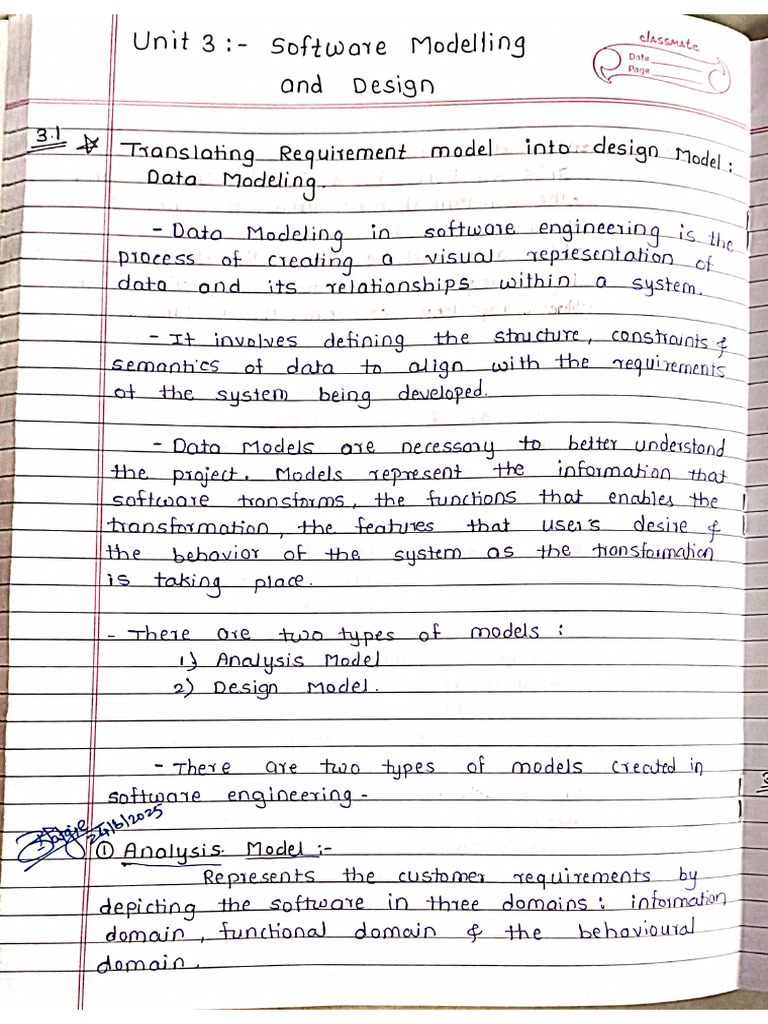 Unit 3 :- Software Modelling
and Design
classmate
Date
Page
3.1 ☆ Translating Requirement model into design Model :
Data Modeling.
- Data Modeling in software engineering is the
process of creating a visual representation of
data and its relationships within a system.
- It involves defining the structure, constraints &
semantics of data to align with the requirements
of the system being developed.
- Data Models are necessary to better understand
the project. Models represent the information that
software transforms, the functions that enables the
transformation, the features that user's desire &
the behavior of the system as the transformation
is taking place.
- There are two types of models :
1) Analysis Model
2) Design Model.
- There are two types of models created in
software engineering -
24/6/2025
① Analysis Model :-
Represents the customer requirements by
depicting the software in three domains : information
domain, functional domain & the behavioural
domain.